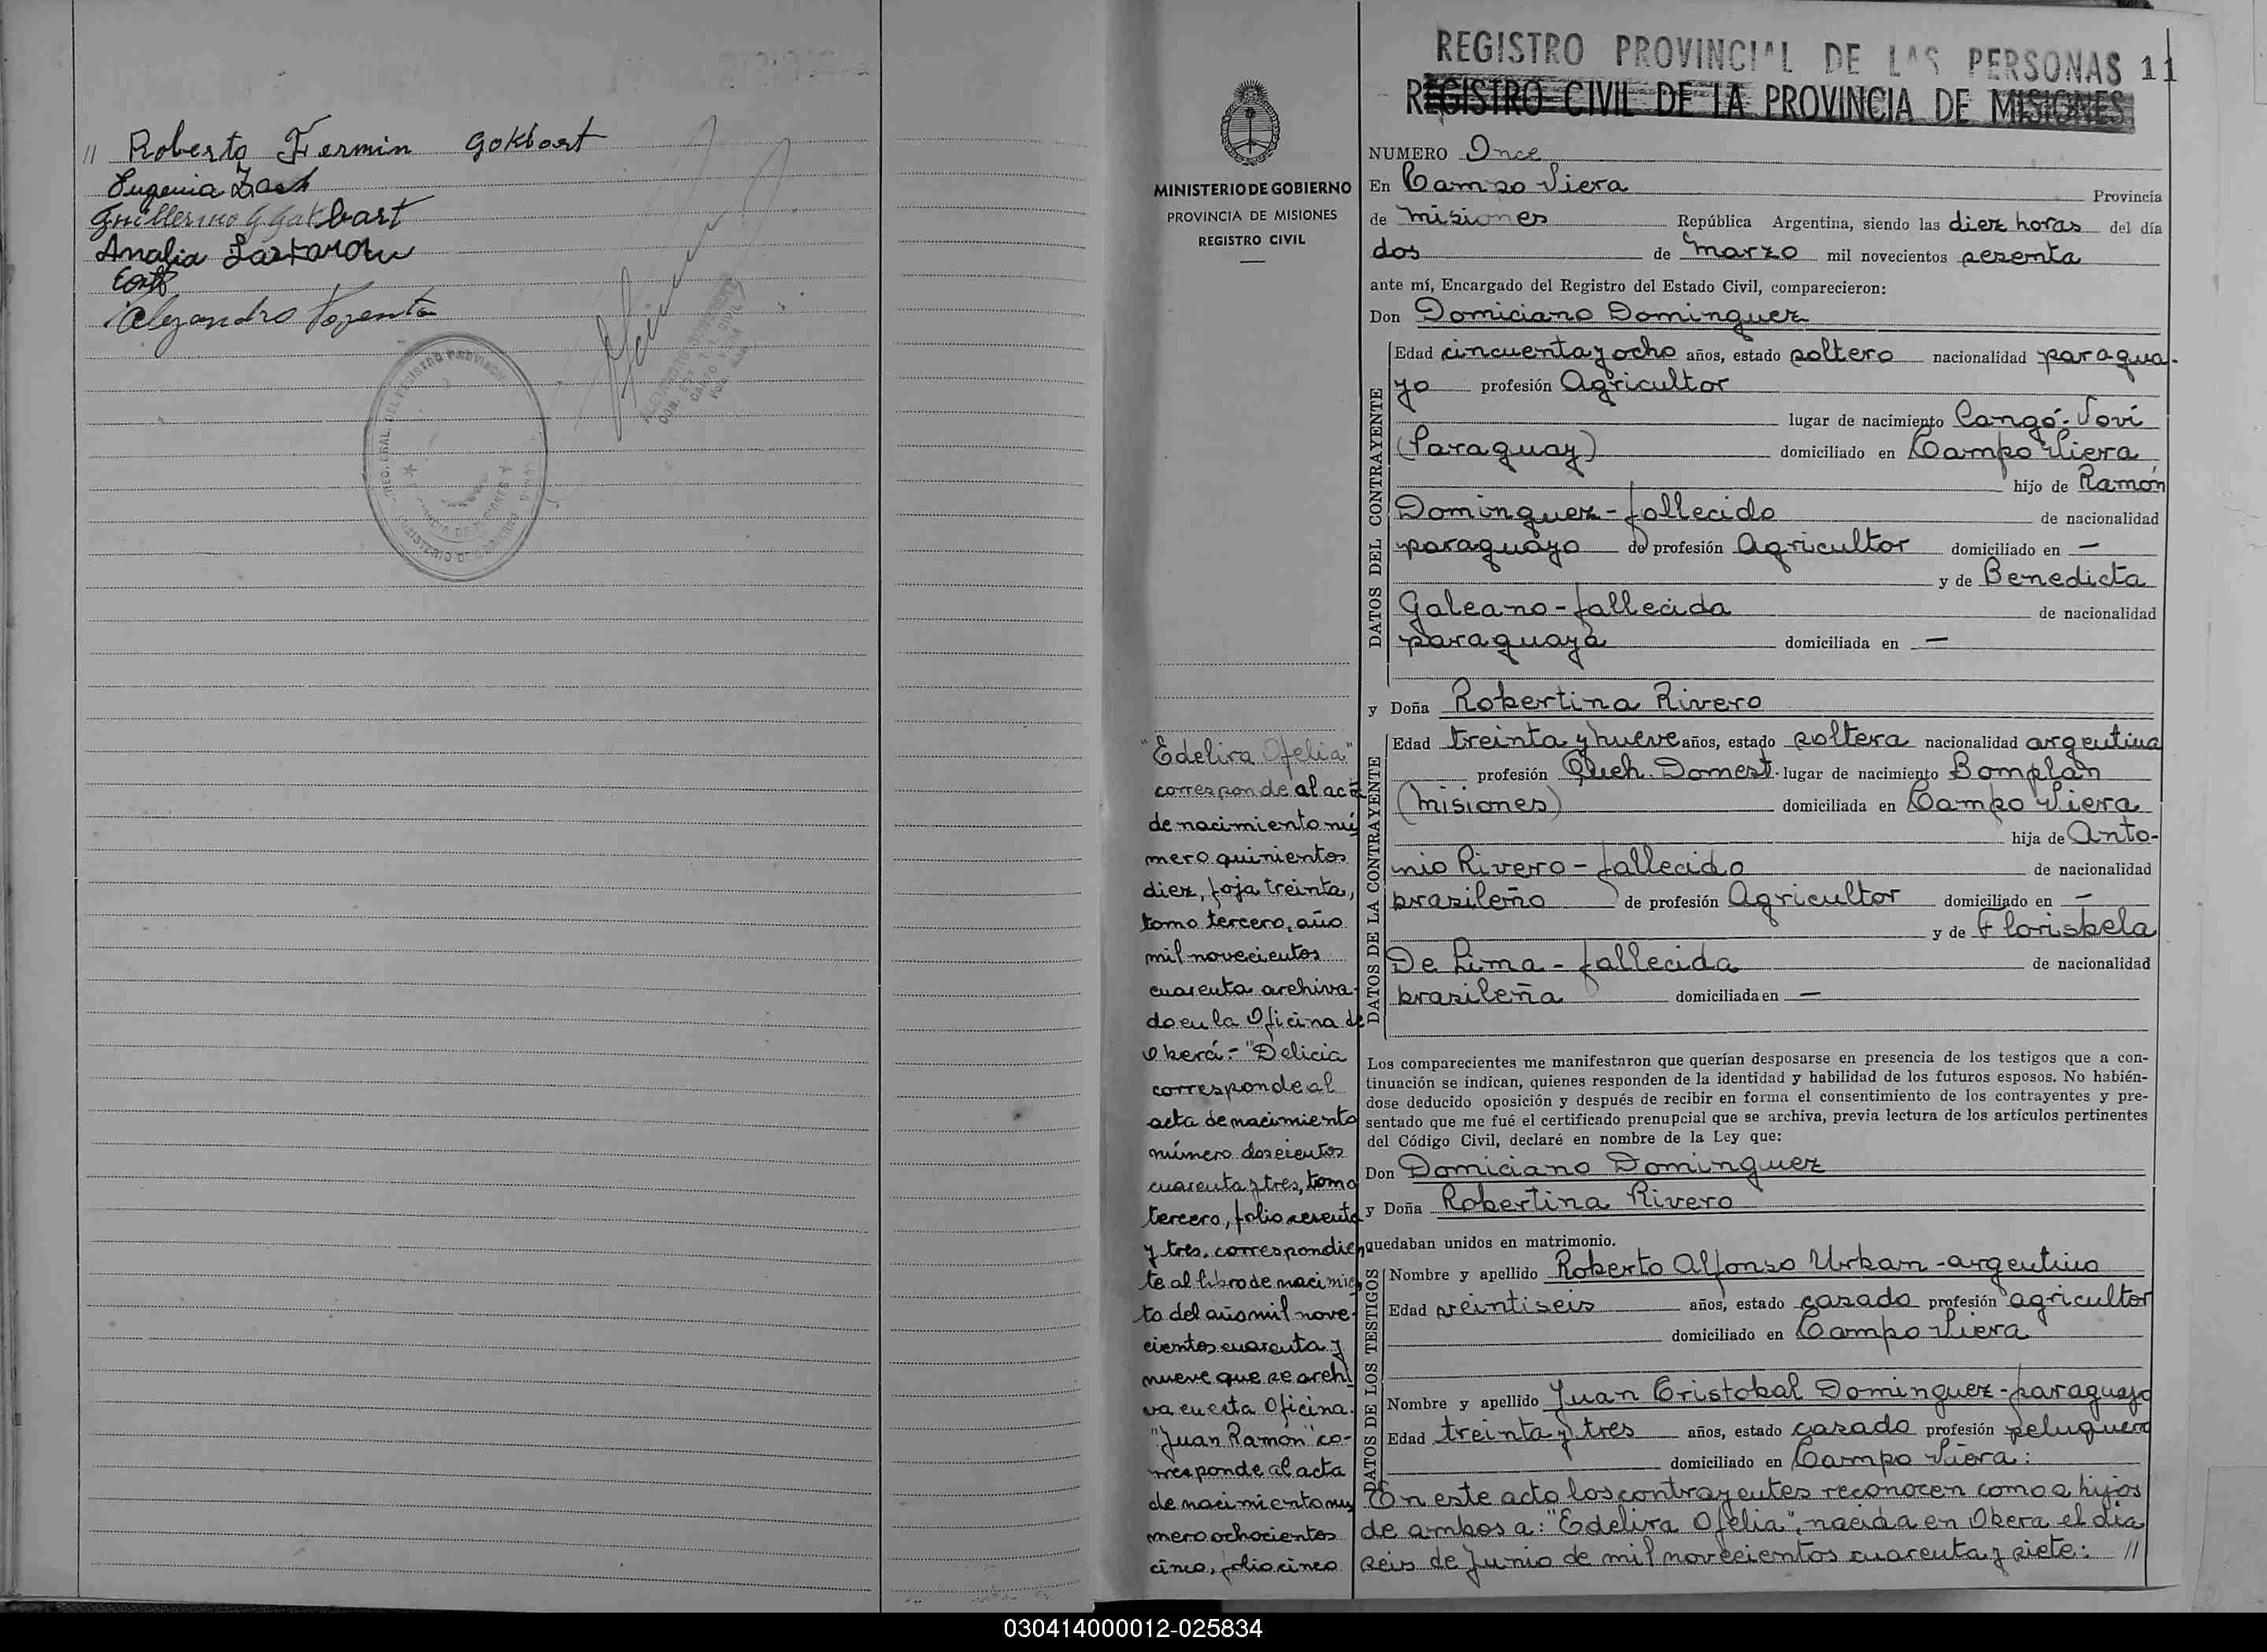 // Roberto Fermin Gokbart
Eugenia
Guillermo G Gokbart
Analia
Alejandro
REGISTRO PROVINCIAL DE LAS PERSONAS 11
REGISTRO CIVIL DE LA PROVINCIA DE MISIONES
MINISTERIO DE GOBIERNO
PROVINCIA DE MISIONES
REGISTRO CIVIL
"Edelira Ofelia"
corresponde al act
de nacimiento nú
mero quinientos
diez, foja treinta,
tomo tercero, año
mil novecientos
cuarenta archiva-
do en la Oficina de
Oberá.- "Delicia
corresponde al
acta de nacimiento
número doscientos
cuarenta y tres, tomo
tercero, folio sesenta
y tres, correspondien
te al libro de nacimien
to del año mil nove-
cientos cuarenta y
nueve que se archi
va en esta Oficina.
"Juan Ramón" co-
rresponde al acta
de nacimiento nu
mero ochocientos
cinco, folio cinco
NUMERO Once
En Campo Viera Provincia
de Misiones República Argentina, siendo las diez horas del día
dos de Marzo mil novecientos sesenta
ante mí, Encargado del Registro del Estado Civil, comparecieron:
Don Domiciano Dominguez
DATOS DEL CONTRAYENTE
Edad cincuenta y ocho años, estado soltero nacionalidad paragua-
yo profesión Agricultor
lugar de nacimiento Cangó-Jovi
(Paraguay) domiciliado en Campo Viera,
hijo de Ramón
Dominguez - fallecido de nacionalidad
paraguayo de profesión Agricultor domiciliado en —
y de Benedicta
Galeano - fallecida de nacionalidad
paraguaya domiciliada en —
y Doña Robertina Rivero
DATOS DE LA CONTRAYENTE
Edad treinta y nueve años, estado soltera nacionalidad argentina
profesión Queh. Domest. lugar de nacimiento Bomplan
(Misiones) domiciliada en Campo Viera
hija de Anto-
nio Rivero - fallecido de nacionalidad
brasileño de profesión Agricultor domiciliado en —
y de Florisbela
De Lima - fallecida de nacionalidad
brasileña domiciliada en —
Los comparecientes me manifestaron que querían desposarse en presencia de los testigos que a con-
tinuación se indican, quienes responden de la identidad y habilidad de los futuros esposos. No habién-
dose deducido oposición y después de recibir en forma el consentimiento de los contrayentes y pre-
sentado que me fué el certificado prenupcial que se archiva, previa lectura de los artículos pertinentes
del Código Civil, declaré en nombre de la Ley que:
Don Domiciano Dominguez
y Doña Robertina Rivero
quedaban unidos en matrimonio.
DATOS DE LOS TESTIGOS
Nombre y apellido Roberto Alfonso Urban - argentino
Edad veintiseis años, estado casado profesión agricultor
domiciliado en Campo Viera
Nombre y apellido Juan Cristobal Dominguez - paraguayo
Edad treinta y tres años, estado casado profesión peluquero
domiciliado en Campo Viera:
En este acto los contrayentes reconocen como a hijos
de ambos a: "Edelira Ofelia", nacida en Obera el dia
seis de Junio de mil novecientos cuarenta y siete: //
030414000012-025834